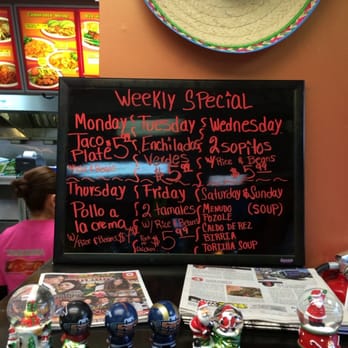 Weekly Special
Monday Tuesday Wednesday
Taco Enchiladas 2 sopitos
Plate $5.99 Verdes w/ Rice & Beans
$5.99
Thursday Friday Saturday & Sunday
Pollo a 2 tamales Menudo (Soup)
la crema w/ Rice & Beans Pozole
w/ Rice & Beans $5.99 Caldo de Rez
Birria
Tortilla Soup